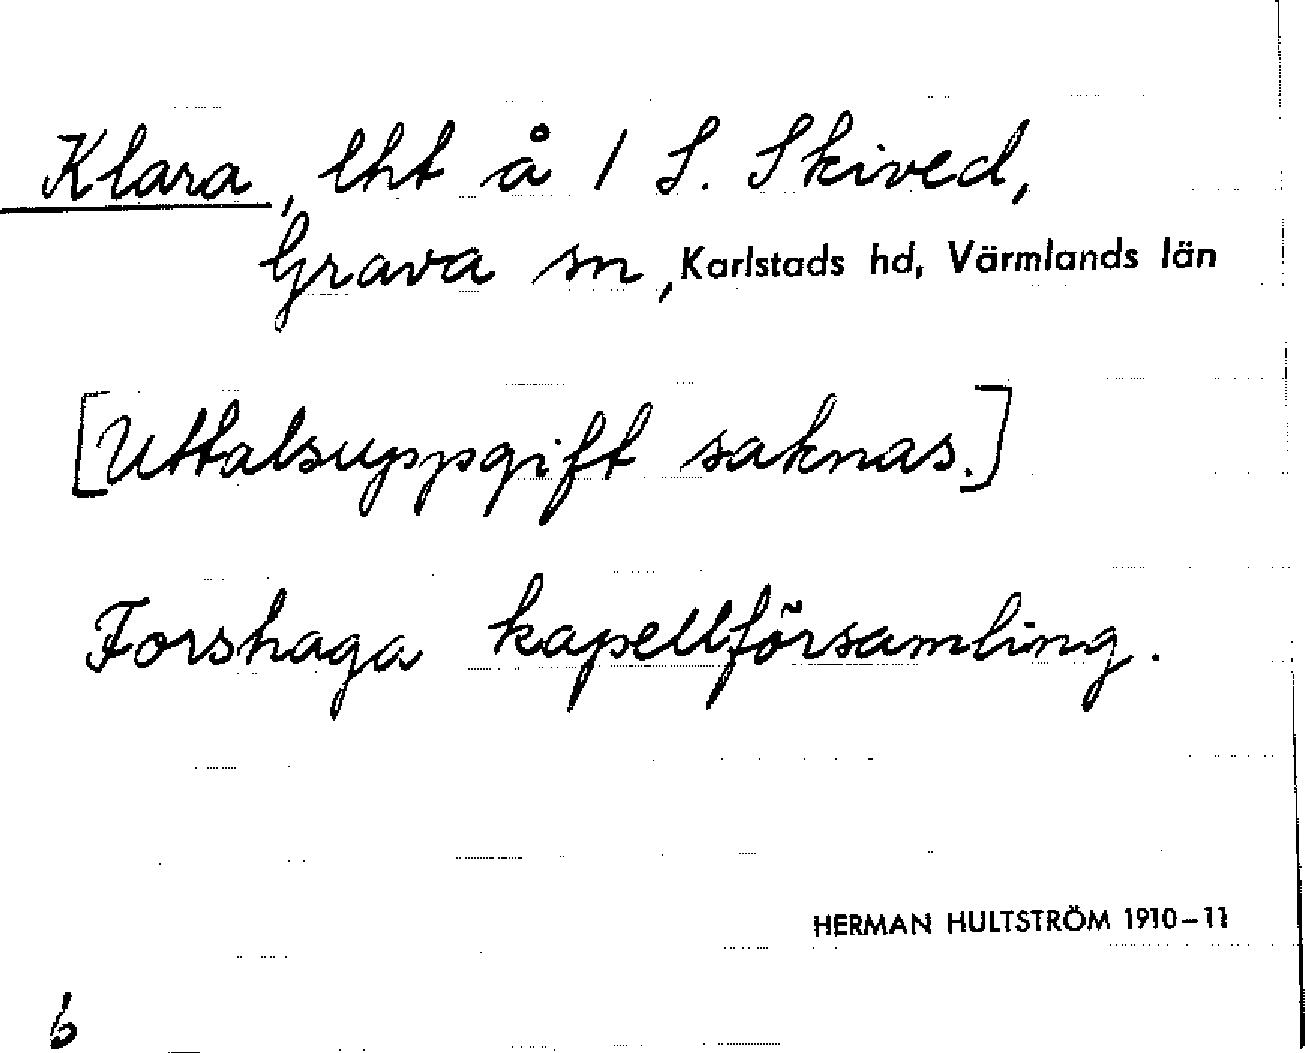 Klara, lht å 1 S. Skived,
Grava sn, Karlstads hd, Värmlands län
[Uttalsuppgift saknas.]
Forshaga kapellförsamling.
HERMAN HULTSTRÖM 1910-11
6